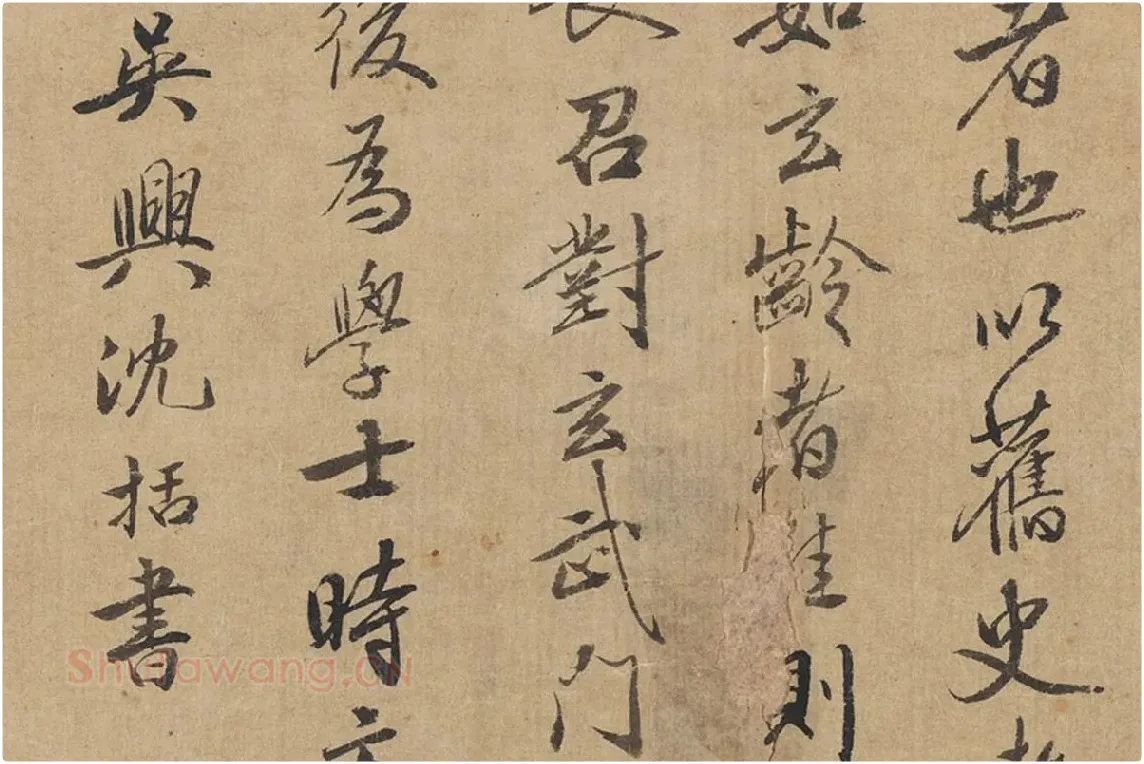 者也以舊史考
如玄齡者唯則
長召對玄武門
後為學士時
吳興沈括書
Shufawang.CN